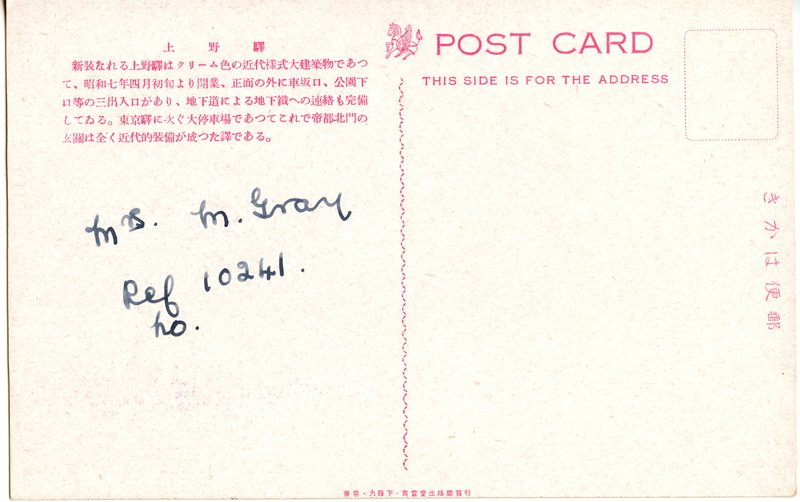 上野驛
新装なれる上野驛はクリーム色の近代様式大建築物であつ
て、昭和七年四月初旬より開業、正面の外に車坂口、公園下
口等の三出入口があり、地下道による地下鐵への連絡も完備
してゐる。東京驛に次ぐ大停車場であつてこれで帝都北門の
玄關は全く近代的装備が成つた譯である。
Mrs. M. Gray
Ref 10241.
no.
POST CARD
THIS SIDE IS FOR THE ADDRESS
きかは便郵
東京・九段下・青雲堂出版部發行